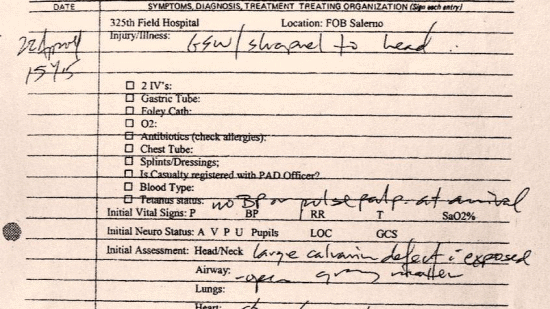 DATE SYMPTOMS, DIAGNOSIS, TREATMENT TREATING ORGANIZATION (Sign each entry)
325th Field Hospital Location: FOB Salerno
22 Apr 04
1545
Injury/Illness: GSW/shrapnel to head
2 IV's:
Gastric Tube:
Foley Cath:
O2:
Antibiotics (check allergies):
Chest Tube:
Splints/Dressings;
Is Casualty registered with PAD Officer?
Blood Type:
Tetanus status: no BP or pulse palp. at arrival
Initial Vital Signs: P BP RR T SaO2%
Initial Neuro Status: A V P U Pupils LOC GCS
Initial Assessment: Head/Neck large calvarium defect c exposed
Airway: gray matter
Lungs:
Heart: